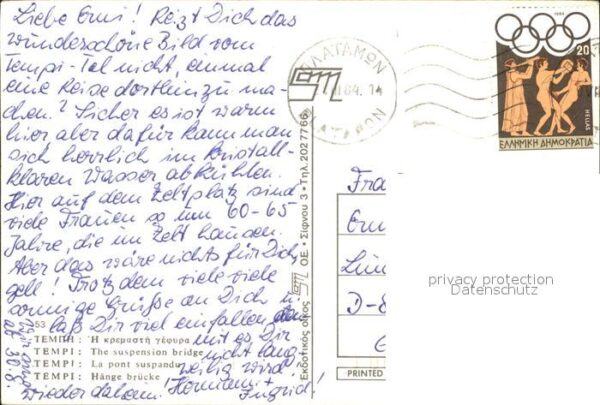 Liebe Erni! Reizt Dich das
wunderschöne Bild vom
Tempi-Tal nicht, einmal
eine Reise dorthin zu ma-
chen? Sicher es ist warm
hier aber dafür kann man
sich herrlich im kristall-
klaren Wasser abkühlen.
Hier auf dem Zeltplatz sind
viele Frauen so um 60-65
Jahre, die im Zelt hausen.
Aber das wäre nichts für Dich
gell! Trotzdem viele viele
sonnige Grüße an Dich u.
laß Dir viel einfallen, damit
es Dir
nicht lang-
weilig wird!
Hermann +
Ingrid!
wieder daheim!
ab 30.8.
53
ΤΕΜΠΗ: Ἡ κρεμαστή γέφυρα
TEMPI: The suspension bridge
TEMPI: La pont suspandu
TEMPI: Hänge brücke
Εκδοτικός οίκος
ΟΕ. • Σίφνου 3 • Τηλ. 2027766
ΠΛΑΤΑΜΩΝ
84. 14
ΠΛΑΤΑΜΩΝ
1984
20
HELLAS
ΕΛΛΗΝΙΚΗ ΔΗΜΟΚΡΑΤΙΑ
Frau
D-8
PRINTED
privacy protection
Datenschutz